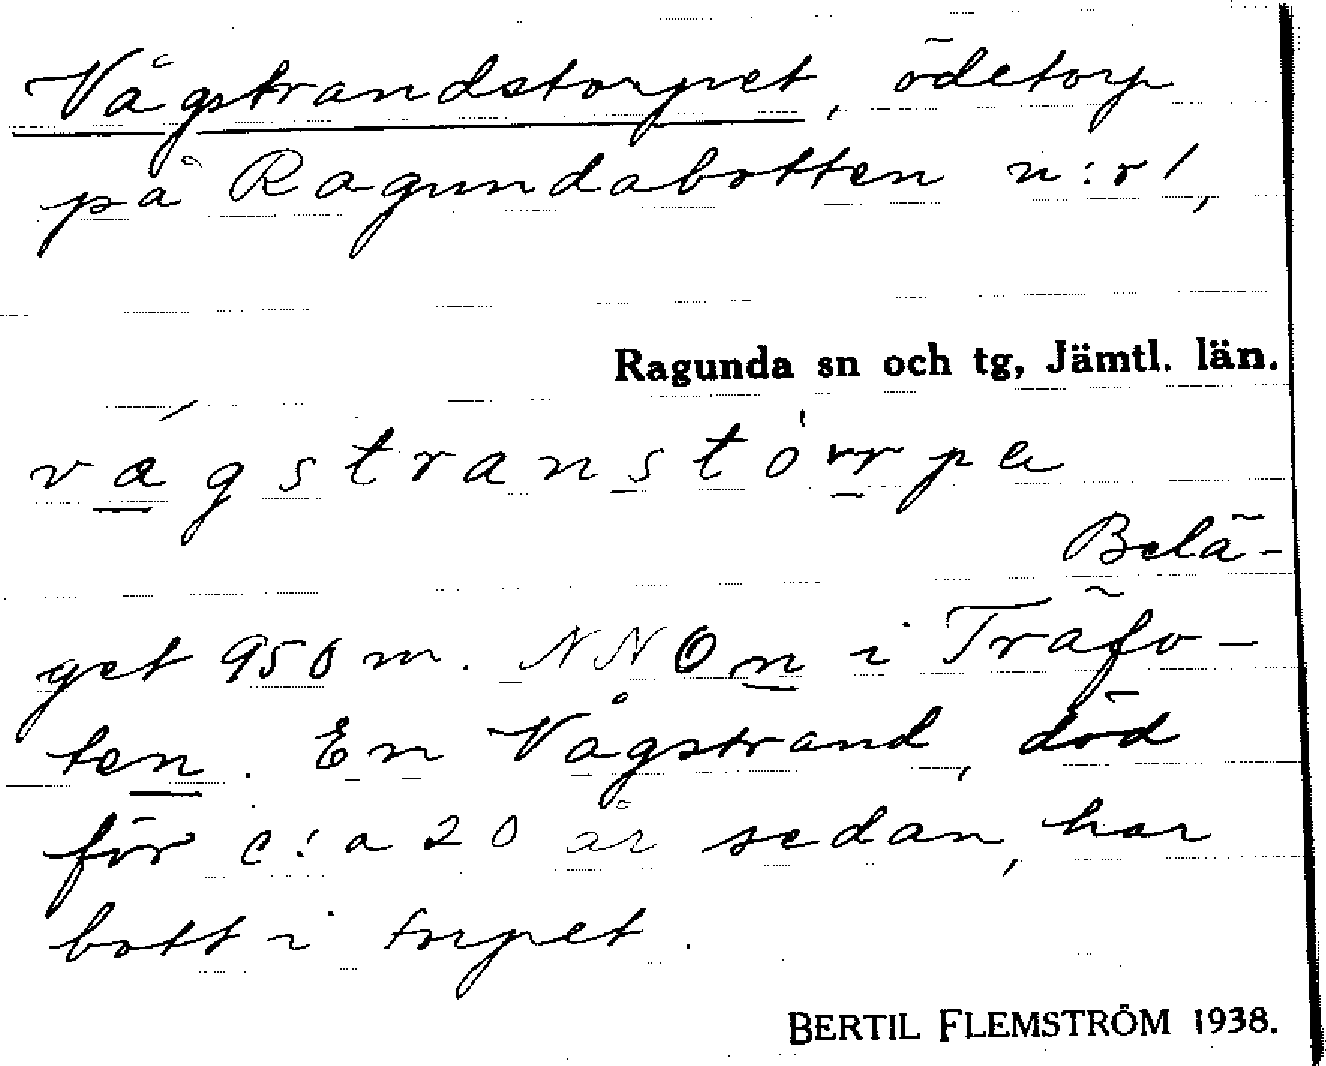 Vågstrandstorpet, ödetorp
på Ragundabotten n:r 1,
Ragunda sn och tg, Jämtl. län.
vágstranstórrpa
Belä-
get 950 m. NNOm i Träfo-
ten. En Vågstrand, död
för c:a 20 år sedan, har
bott i torpet.
BERTIL FLEMSTRÖM 1938.